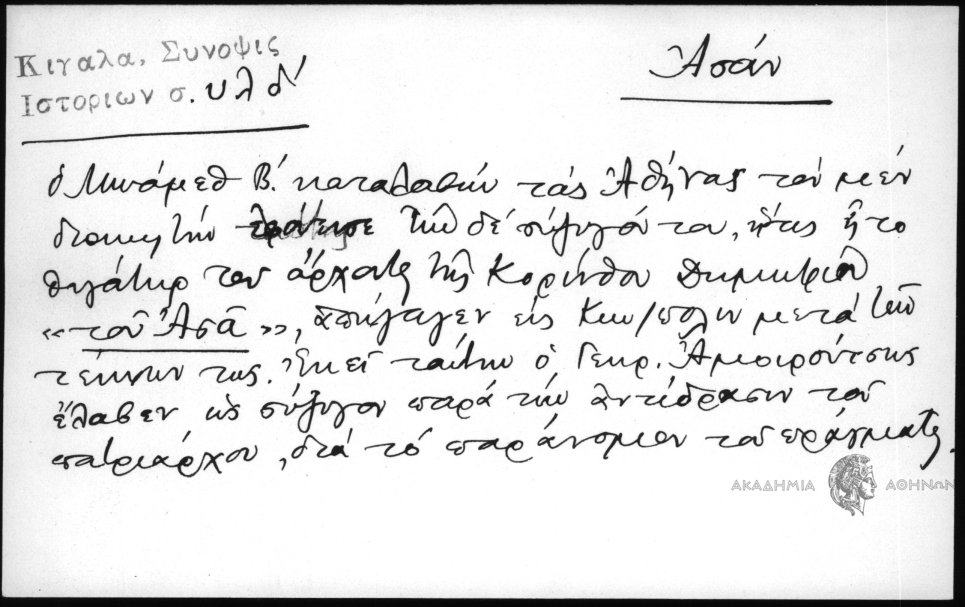 Κιγαλα, Συνοψις
Ιστοριων σ. υλδ'
Ἀσάν
ὁ Μωάμεθ Β΄. καταλαβών τάς Ἀθήνας τόν μέν
διοικητήν τήν δέ σύζυγόν του, ἥτις ἦτο
θυγάτηρ τοῦ ἄρχοντος τῆς Κορίνθου Δημητρίου
«τοῦ Ἀσᾶ», ἀπήγαγεν εἰς Κων/πολιν μετά τῶν
τέκνων της. Ἐκεῖ ταύτην ὁ Γεωρ. Ἀμοιρούτσης
ἔλαβεν ὡς σύζυγον παρά τήν ἀντίδρασιν τοῦ
πατριάρχου, διά τό παράνομον τοῦ πράγματος.
ΑΚΑΔΗΜΙΑ ΑΘΗΝΩΝ